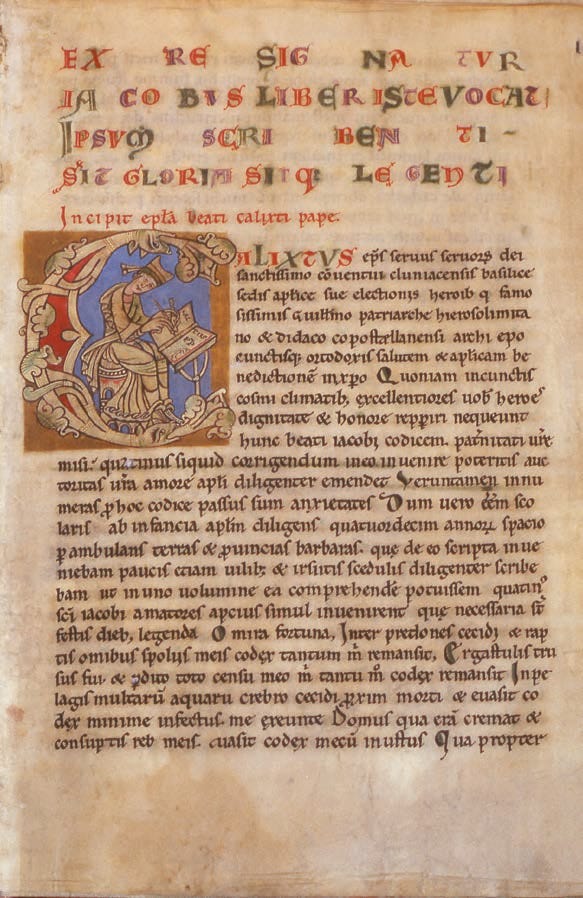 EX RE SIGNATUR
IACOBUS LIBER ISTE VOCAT
IPSVM SCRIBENTI-
SIT GLORIA SITQ: LEGENTI
Incipit epl̄a beati calixti pape.
CALIXTVS ep̄s seruus seruoꝝ dei
sanctissimo cōuentui cluniacensis basilice
sedis aplice sue electionis heroib q famo
sissimis guillmo patriarche hierosolimita
no & didaco copostellanensi archi epo
cunctisq; ortodoxis salutem & aplicam be
nedictionē inxpo Quoniam incunctis
cosmi climatib, excellentiores uob heroes
dignitate & honore repperiri nequeunt
hunc beati iacobi codicem. pat̄nitati ur̄e
misi. quatinus siquid corrigendum ineo inuenire poteritis auc
toritas ur̄a amore apl̄i diligenter emendet Veruntamen innu
meras ꝓ hoc codice passus sum anxietates Dum uero eēm sco
laris ab infancia apl̄m diligens quatuordecim annoꝝ spacio
ꝑambulans terras & ꝓuincias barbaras. que de eo scripta inue
niebam paucis etiam uilib; & irsutis scedulis diligenter scribe
bam ut in uno uolumine ea comprehende potuissem quatin⁹
sc̄i iacobi amatores apcius simul inuenirent que necessaria st̄
festis dieb, legenda O mira fortuna, Inter predones cecidi & rap
tis omibus spoliis meis codex tantum m̄ remansit, Ergastulis tru
sus fui & ꝑdito toto censu meo m̄ tantu m̄ codex remansit Inpe
lagis multarū aquaru crebro cecidi ꝓxim morti & euasit co
dex minime infectus. me exeunte Domus qua erā cremat &
consūptis reb meis. euasit codex mecū inustus Qua propter